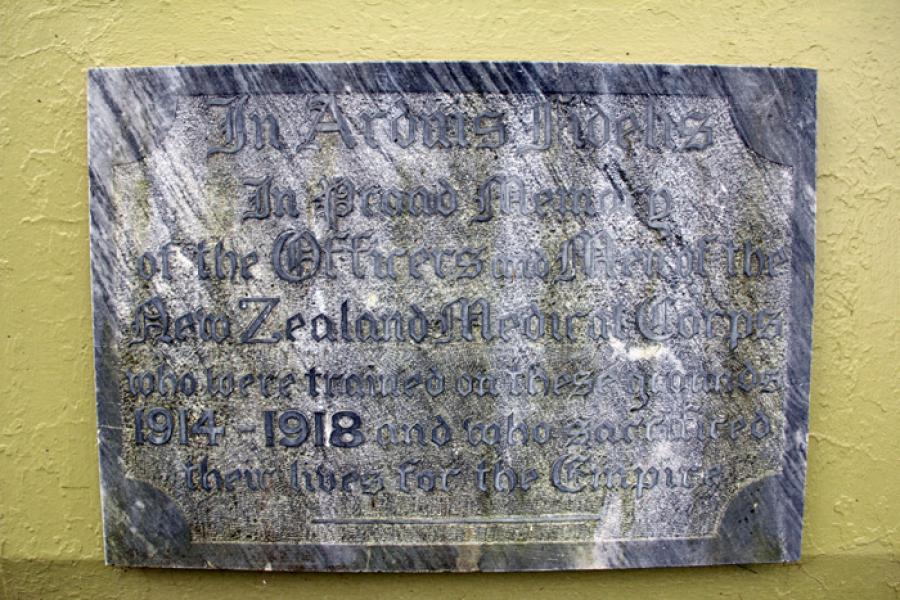 In Arduis Fidelis
In Proud Memory
of the Officers and Men of the
New Zealand Medical Corps
who were trained on these grounds
1914-1918 and who sacrificed
their lives for the Empire